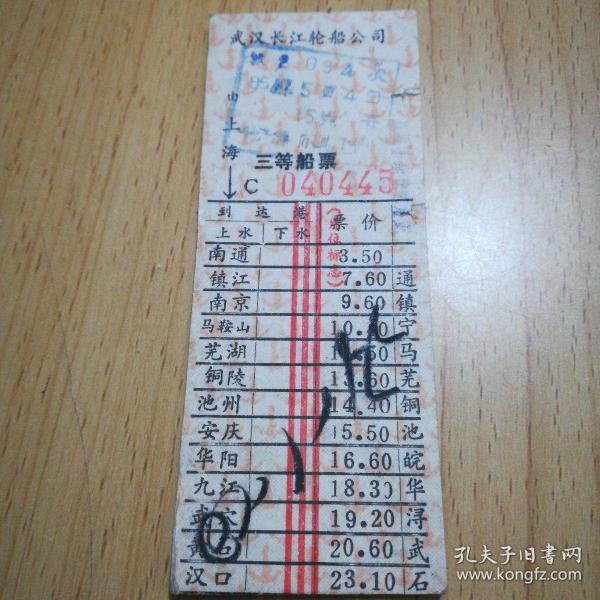 武汉长江轮船公司
由上海
三等船票
C 040445
到达港 票价
上水 下水
(位标志)
南通 3.50
镇江 7.60 通
南京 9.60 镇
马鞍山 宁
芜湖 马
铜陵 13.60 芜
池州 14.40 铜
安庆 15.50 池
华阳 16.60 皖
九江 18.30 华
武穴 19.20 浔
黄石 20.60 武
汉口 23.10 石
孔夫子旧书网
www.kongfz.com